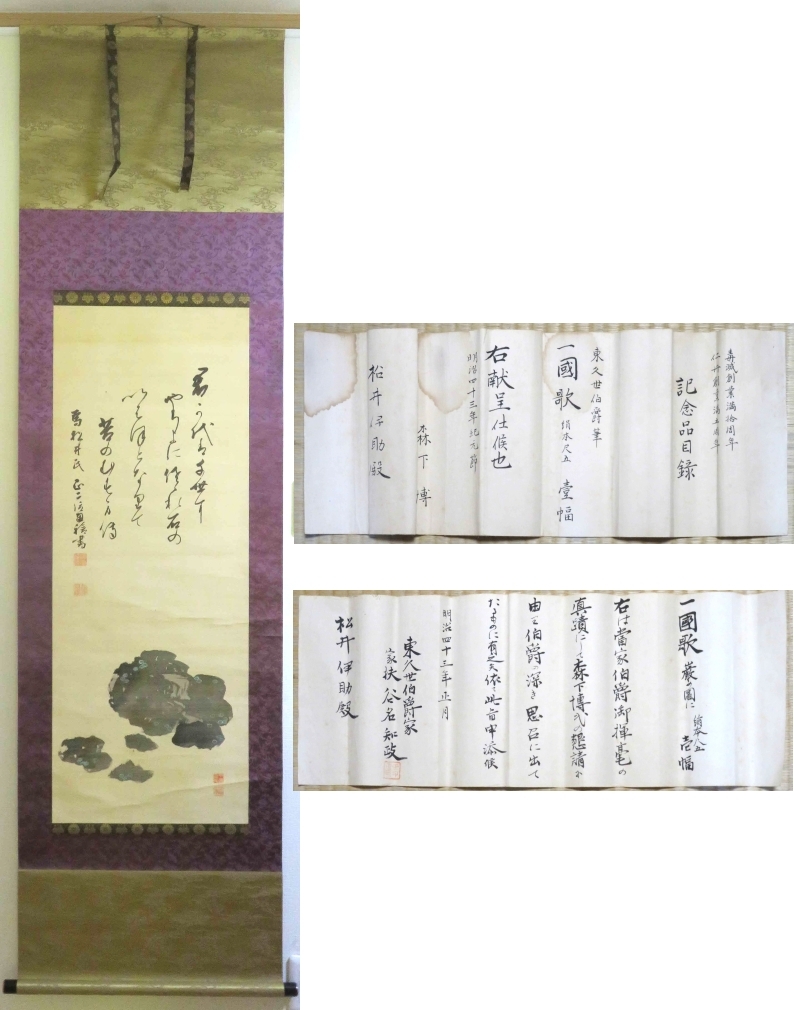 君か代は千世に
やちよに佐ゝれ石の
いはほとなりて
苔のむすまて
為松井氏 正二位通禧書
毒滅創業満拾周年
仁丹開業満五周年
記念品目録
東久世伯爵筆
一國歌 絹本尺五 壹幅
右献呈仕候也
明治四十三年紀元節
森下博
松井伊助殿
一國歌 巌の圖に 絹本尺五 壱幅
右は當家伯爵御揮毫の
真蹟にして森下博氏の懇請に
由り伯爵の深き思召に出て
たるものに有之候依て此旨申添候
明治四十三年正月
東久世伯爵家
家扶 谷名知政
松井伊助殿